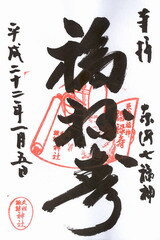 奉拝
東海七福神
福禄寿
平成二十二年一月五日
神社